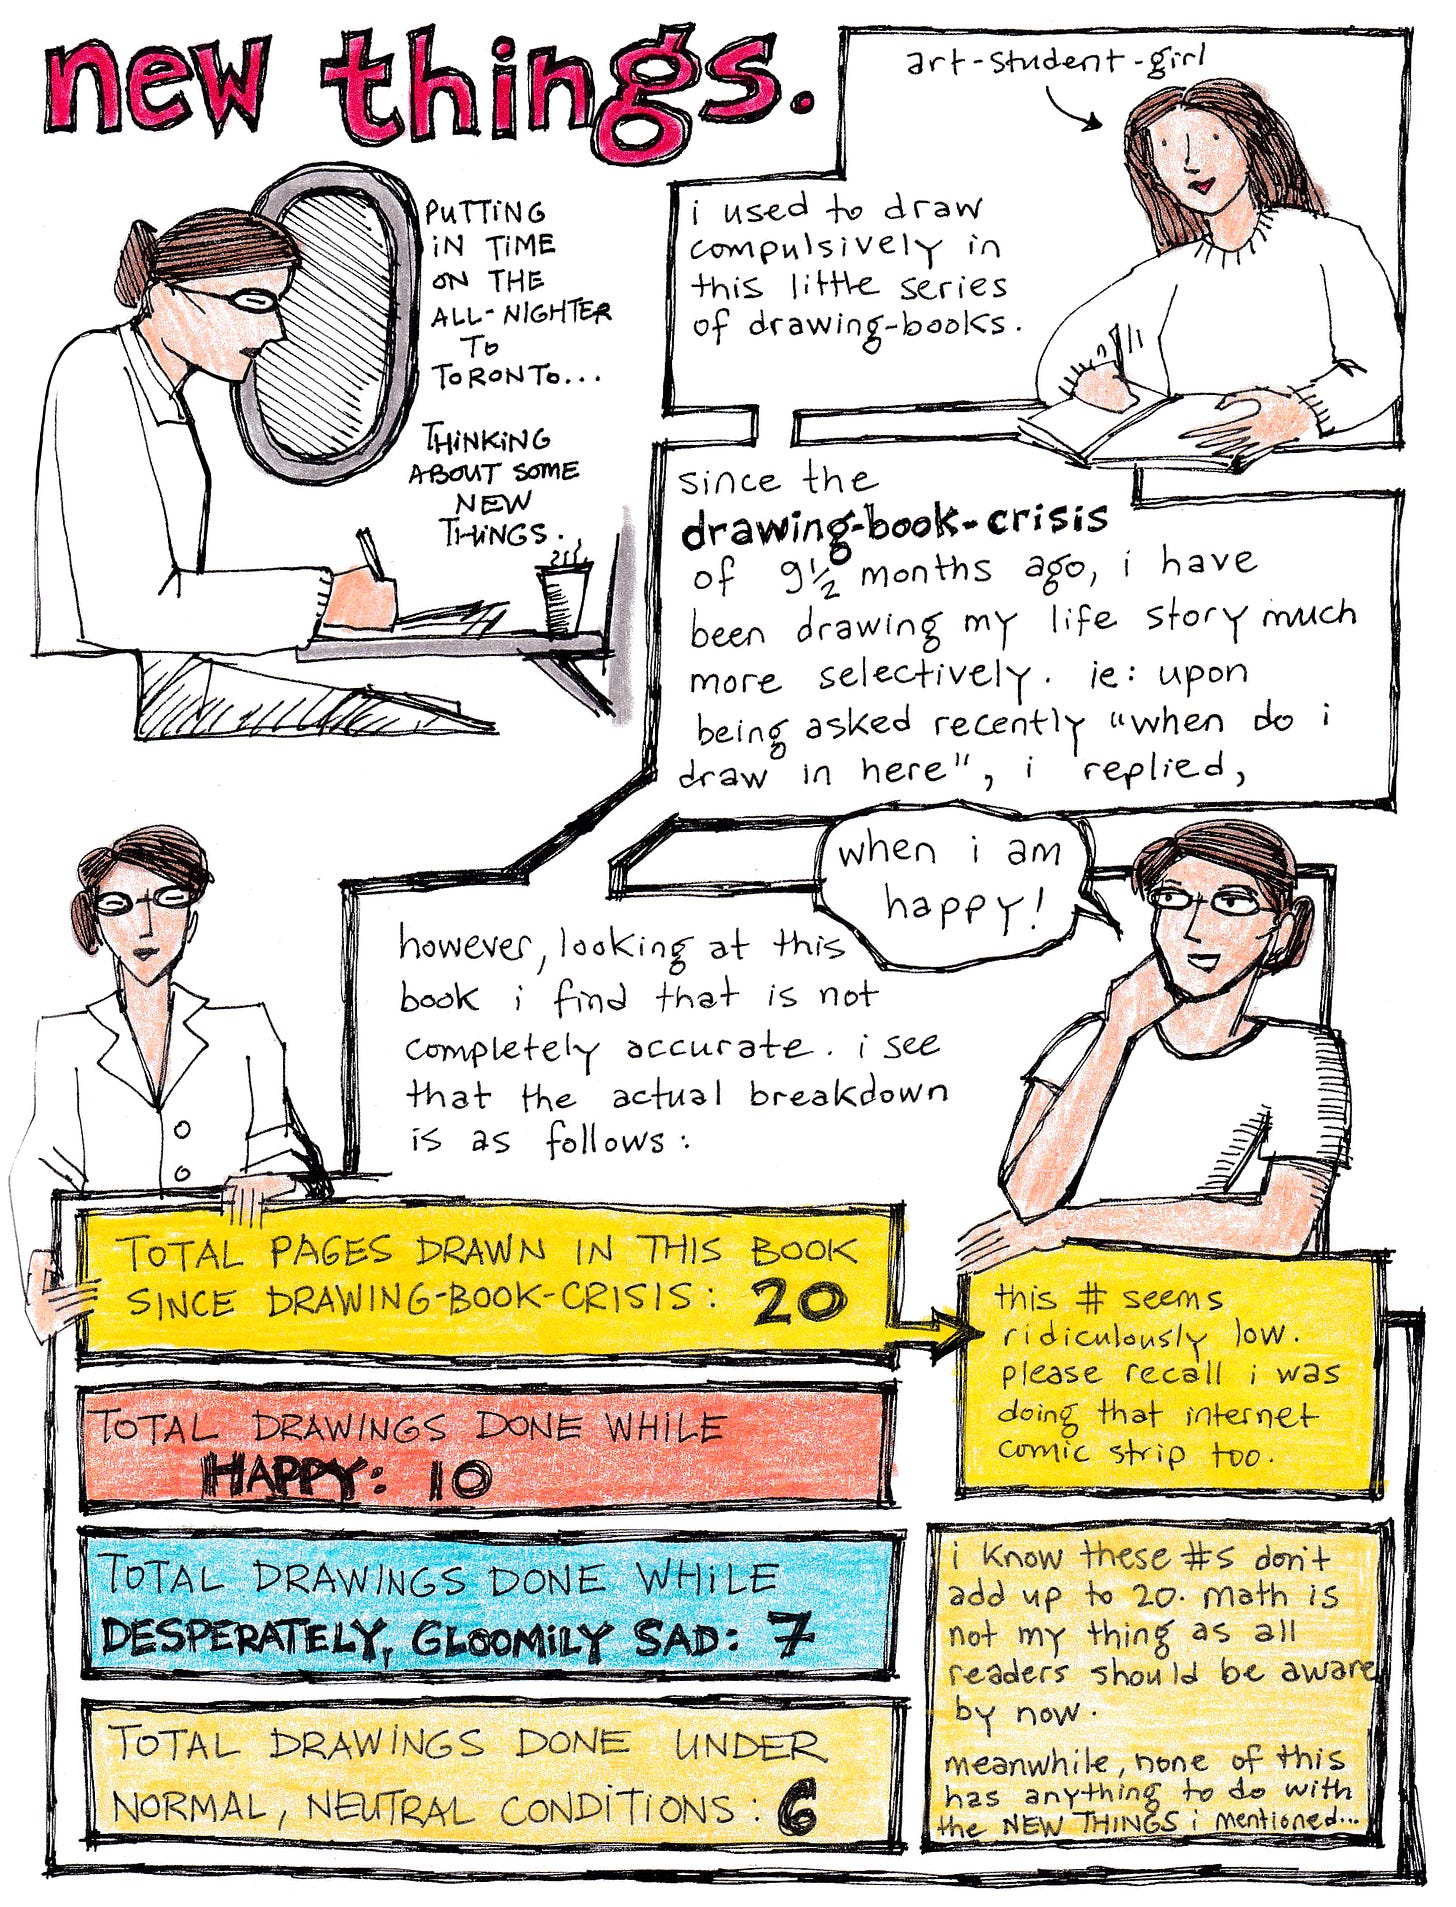 new things.
PUTTING
IN TIME
ON THE
ALL-NIGHTER
TO
TORONTO...
THINKING
ABOUT SOME
NEW
THINGS.
art-student-girl
i used to draw
compulsively in
this little series
of drawing-books.
since the
drawing-book-crisis
of 9½ months ago, i have
been drawing my life story much
more selectively. ie: upon
being asked recently "when do i
draw in here", i replied,
when i am
happy!
however, looking at this
book i find that is not
completely accurate. i see
that the actual breakdown
is as follows:
TOTAL PAGES DRAWN IN THIS BOOK
SINCE DRAWING-BOOK-CRISIS: 20
this # seems
ridiculously low.
please recall i was
doing that internet
comic strip too.
TOTAL DRAWINGS DONE WHILE
HAPPY: 10
TOTAL DRAWINGS DONE WHILE
DESPERATELY, GLOOMILY SAD: 7
TOTAL DRAWINGS DONE UNDER
NORMAL, NEUTRAL CONDITIONS: 6
i know these #s don't
add up to 20. math is
not my thing as all
readers should be aware
by now.
meanwhile, none of this
has anything to do with
the NEW THINGS i mentioned...